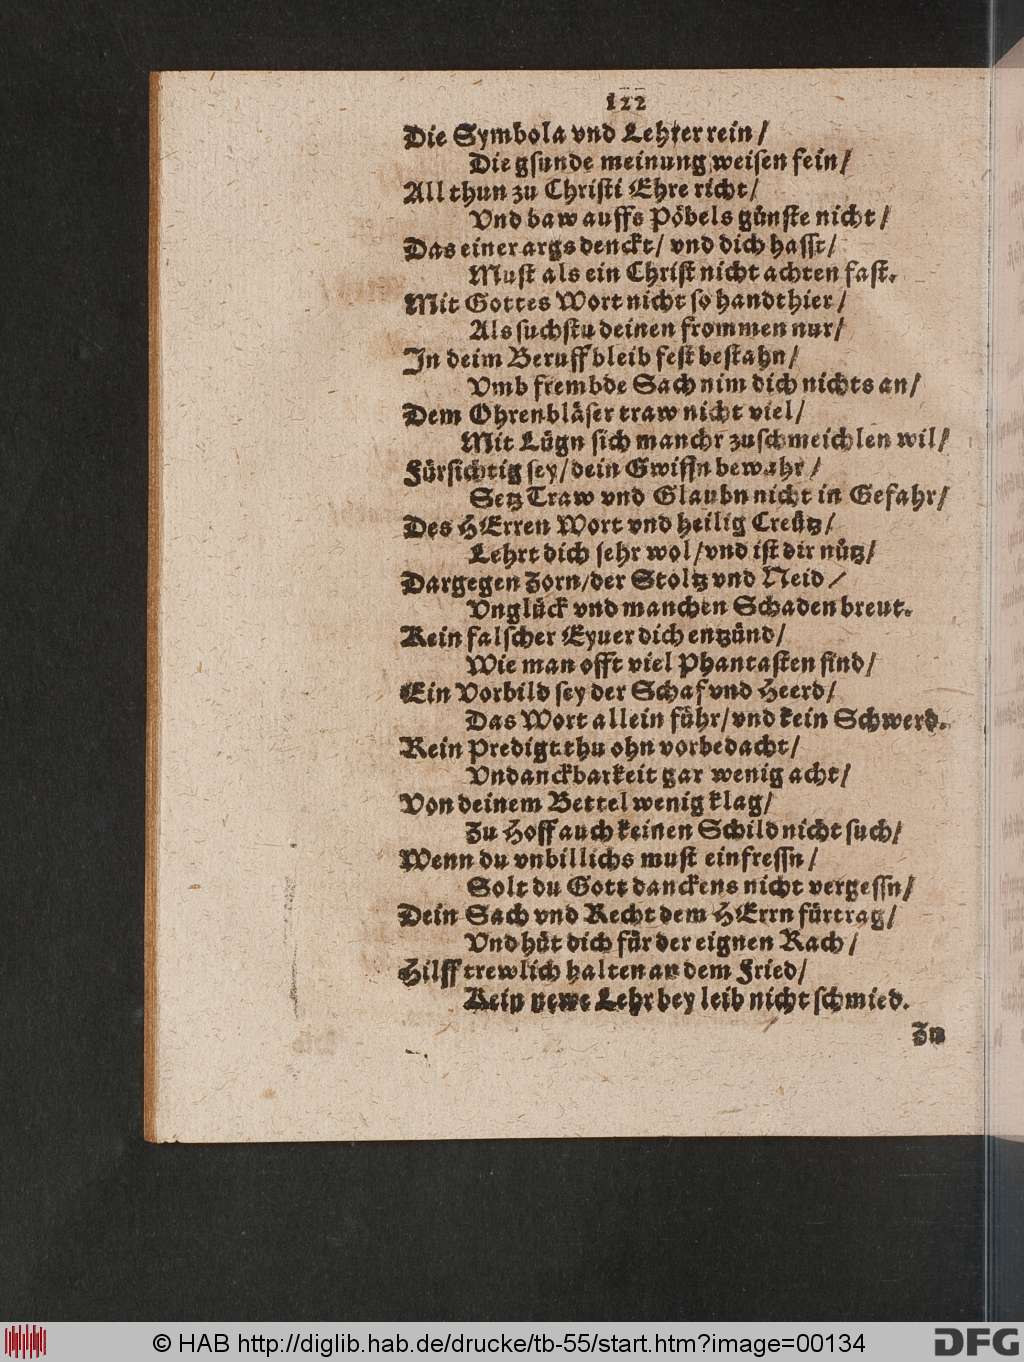 122
Die Symbola vnd Lehrer rein/
Die gsunde meinung weisen fein/
All thun zu Christi Ehre richt/
Vnd baw auffs Pöbels günste nicht/
Das einer args denckt/ vnd dich hasst/
Must als ein Christ nicht achten fast.
Mit Gottes Wort nicht so handthier/
Als suchstu deinen frommen nur/
In deim Beruff bleib fest bestahn/
Vmb frembde Sach nim dich nichts an/
Dem Ohrenbläser traw nicht viel/
Mit Lügn sich manchr zuschmeichlen wil/
Fürsichtig sey/dein Gwissn bewahr/
Setz Traw vnd Glaubn nicht in Gefahr/
Des HErren Wort vnd heilig Creütz/
Lehrt dich sehr wol/vnd ist dir nütz/
Dargegen Zorn/der Stoltz vnd Neid/
Vnglück vnd manchen Schaden breut.
Kein falscher Eyuer dich entzünd/
Wie man offt viel Phantasten find/
Ein Vorbild sey der Schaf vnd Heerd/
Das Wort allein führ/vnd kein Schwerd.
Kein Predigt thu ohn vorbedacht/
Vndanckbarkeit gar wenig acht/
Von deinem Bettel wenig klag/
Zu Hoff auch keinen Schild nicht such/
Wenn du vnbillichs must einfressn/
Solt du Gott danckens nicht vergessn/
Dein Sach vnd Recht dem HErrn fürtrag/
Vnd hüt dich für der eignen Rach/
Hilff trewlich halten an dem Fried/
Kein newe Lehr bey leib nicht schmied.
Zu
© HAB http://diglib.hab.de/drucke/tb-55/start.htm?image=00134
DFG